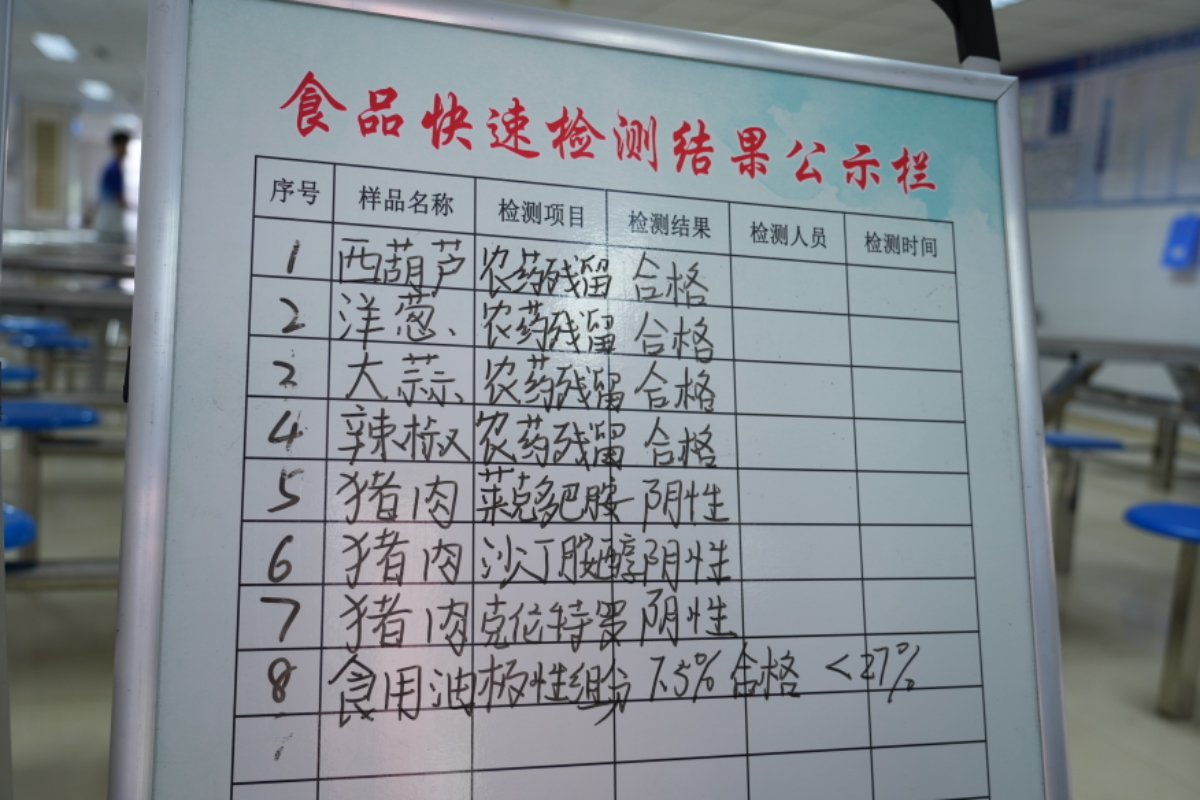 食品快速检测结果公示栏
序号 样品名称 检测项目 检测结果 检测人员 检测时间
1 西葫芦 农药残留 合格
2 洋葱、 农药残留 合格
2 大蒜 农药残留 合格
4 辣椒 农药残留 合格
5 猪肉 莱克多巴胺 阴性
6 猪肉 沙丁胺醇 阴性
7 猪肉 克伦特罗 阴性
8 食用油 极性组分 7.5% 合格 <27%